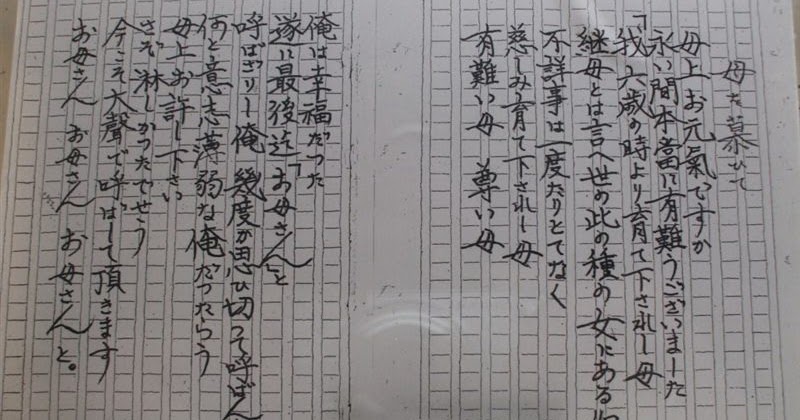 母を慕ひて
母上お元氣ですか
永い間本當に有難うございました
「我六歳の時より育て下されし母
継母とは言へ世の此の種の女にある
不詳事は一度たりとてなく
慈しみ育て下されし母
有難い母 尊い母
俺は幸福だった
遂に最後迄「お母さん」と
呼ばざりし俺 幾度か思ひ切って呼ばん
何と意志薄弱な俺だったらう
母上お許し下さい
さぞ淋しかったでせう
今こそ大聲で呼ばして頂きます
お母さん お母さん お母さんと。